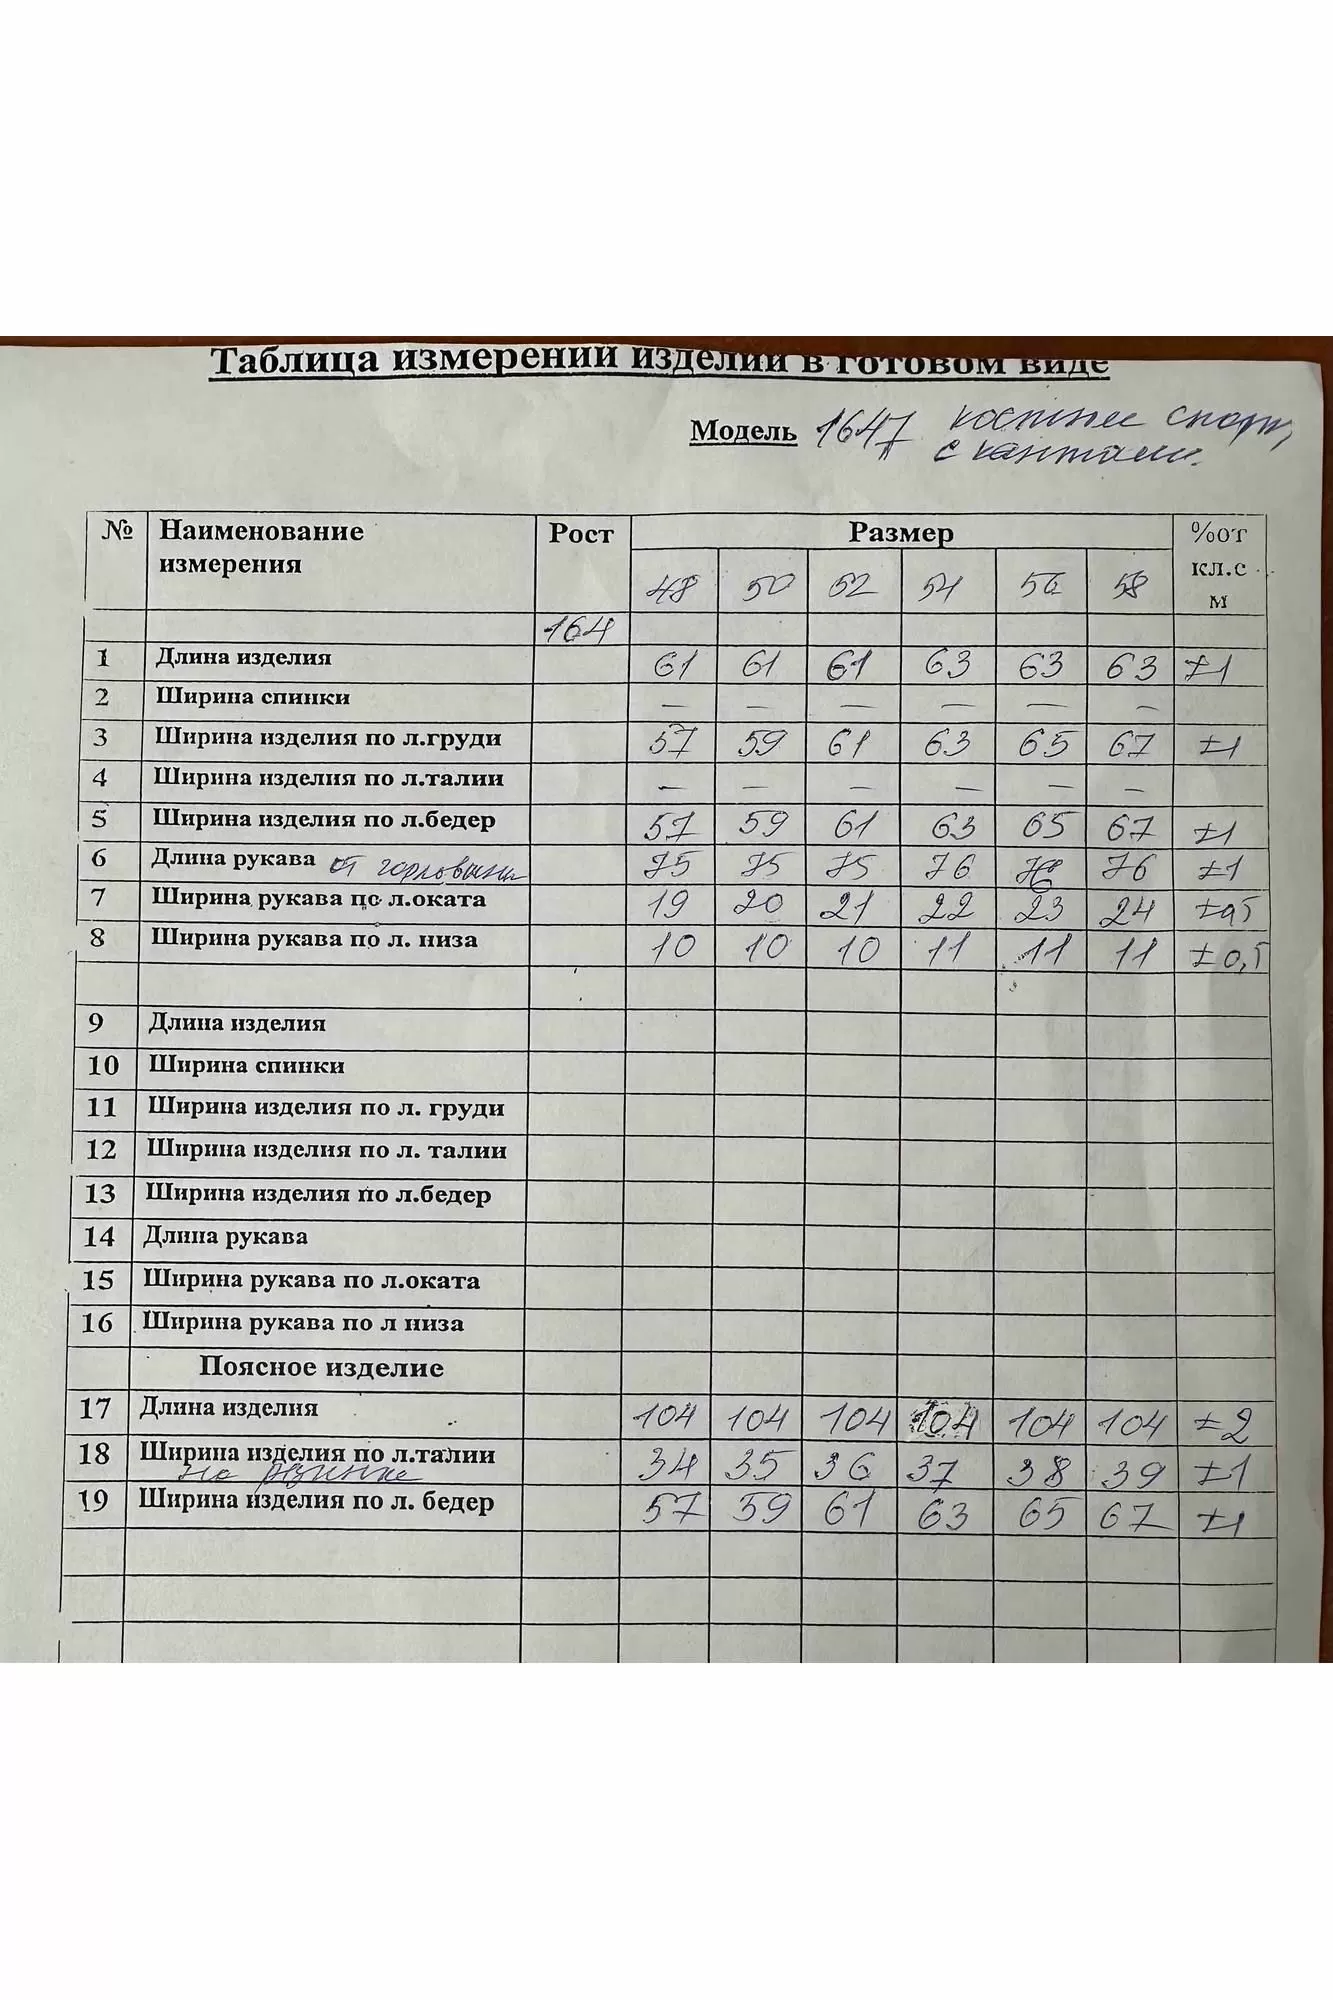 Таблица измерений изделий в готовом виде
Модель 1647 костюм спорт,
с кантами.
№ Наименование измерения Рост Размер %от кл.с м
48 50 52 54 56 58
164
1 Длина изделия 61 61 61 63 63 63 ±1
2 Ширина спинки — — — — — —
3 Ширина изделия по л.груди 57 59 61 63 65 67 ±1
4 Ширина изделия по л.талии — — — — — —
5 Ширина изделия по л.бедер 57 59 61 63 65 67 ±1
6 Длина рукава от горловины 75 75 75 76 76 76 ±1
7 Ширина рукава по л.оката 19 20 21 22 23 24 ±0,5
8 Ширина рукава по л. низа 10 10 10 11 11 11 ±0,5
9 Длина изделия
10 Ширина спинки
11 Ширина изделия по л. груди
12 Ширина изделия по л. талии
13 Ширина изделия по л.бедер
14 Длина рукава
15 Ширина рукава по л.оката
16 Ширина рукава по л низа
Поясное изделие
17 Длина изделия 104 104 104 104 104 104 ±2
18 Ширина изделия по л.талии 34 35 36 37 38 39 ±1
на резинке
19 Ширина изделия по л. бедер 57 59 61 63 65 67 ±1